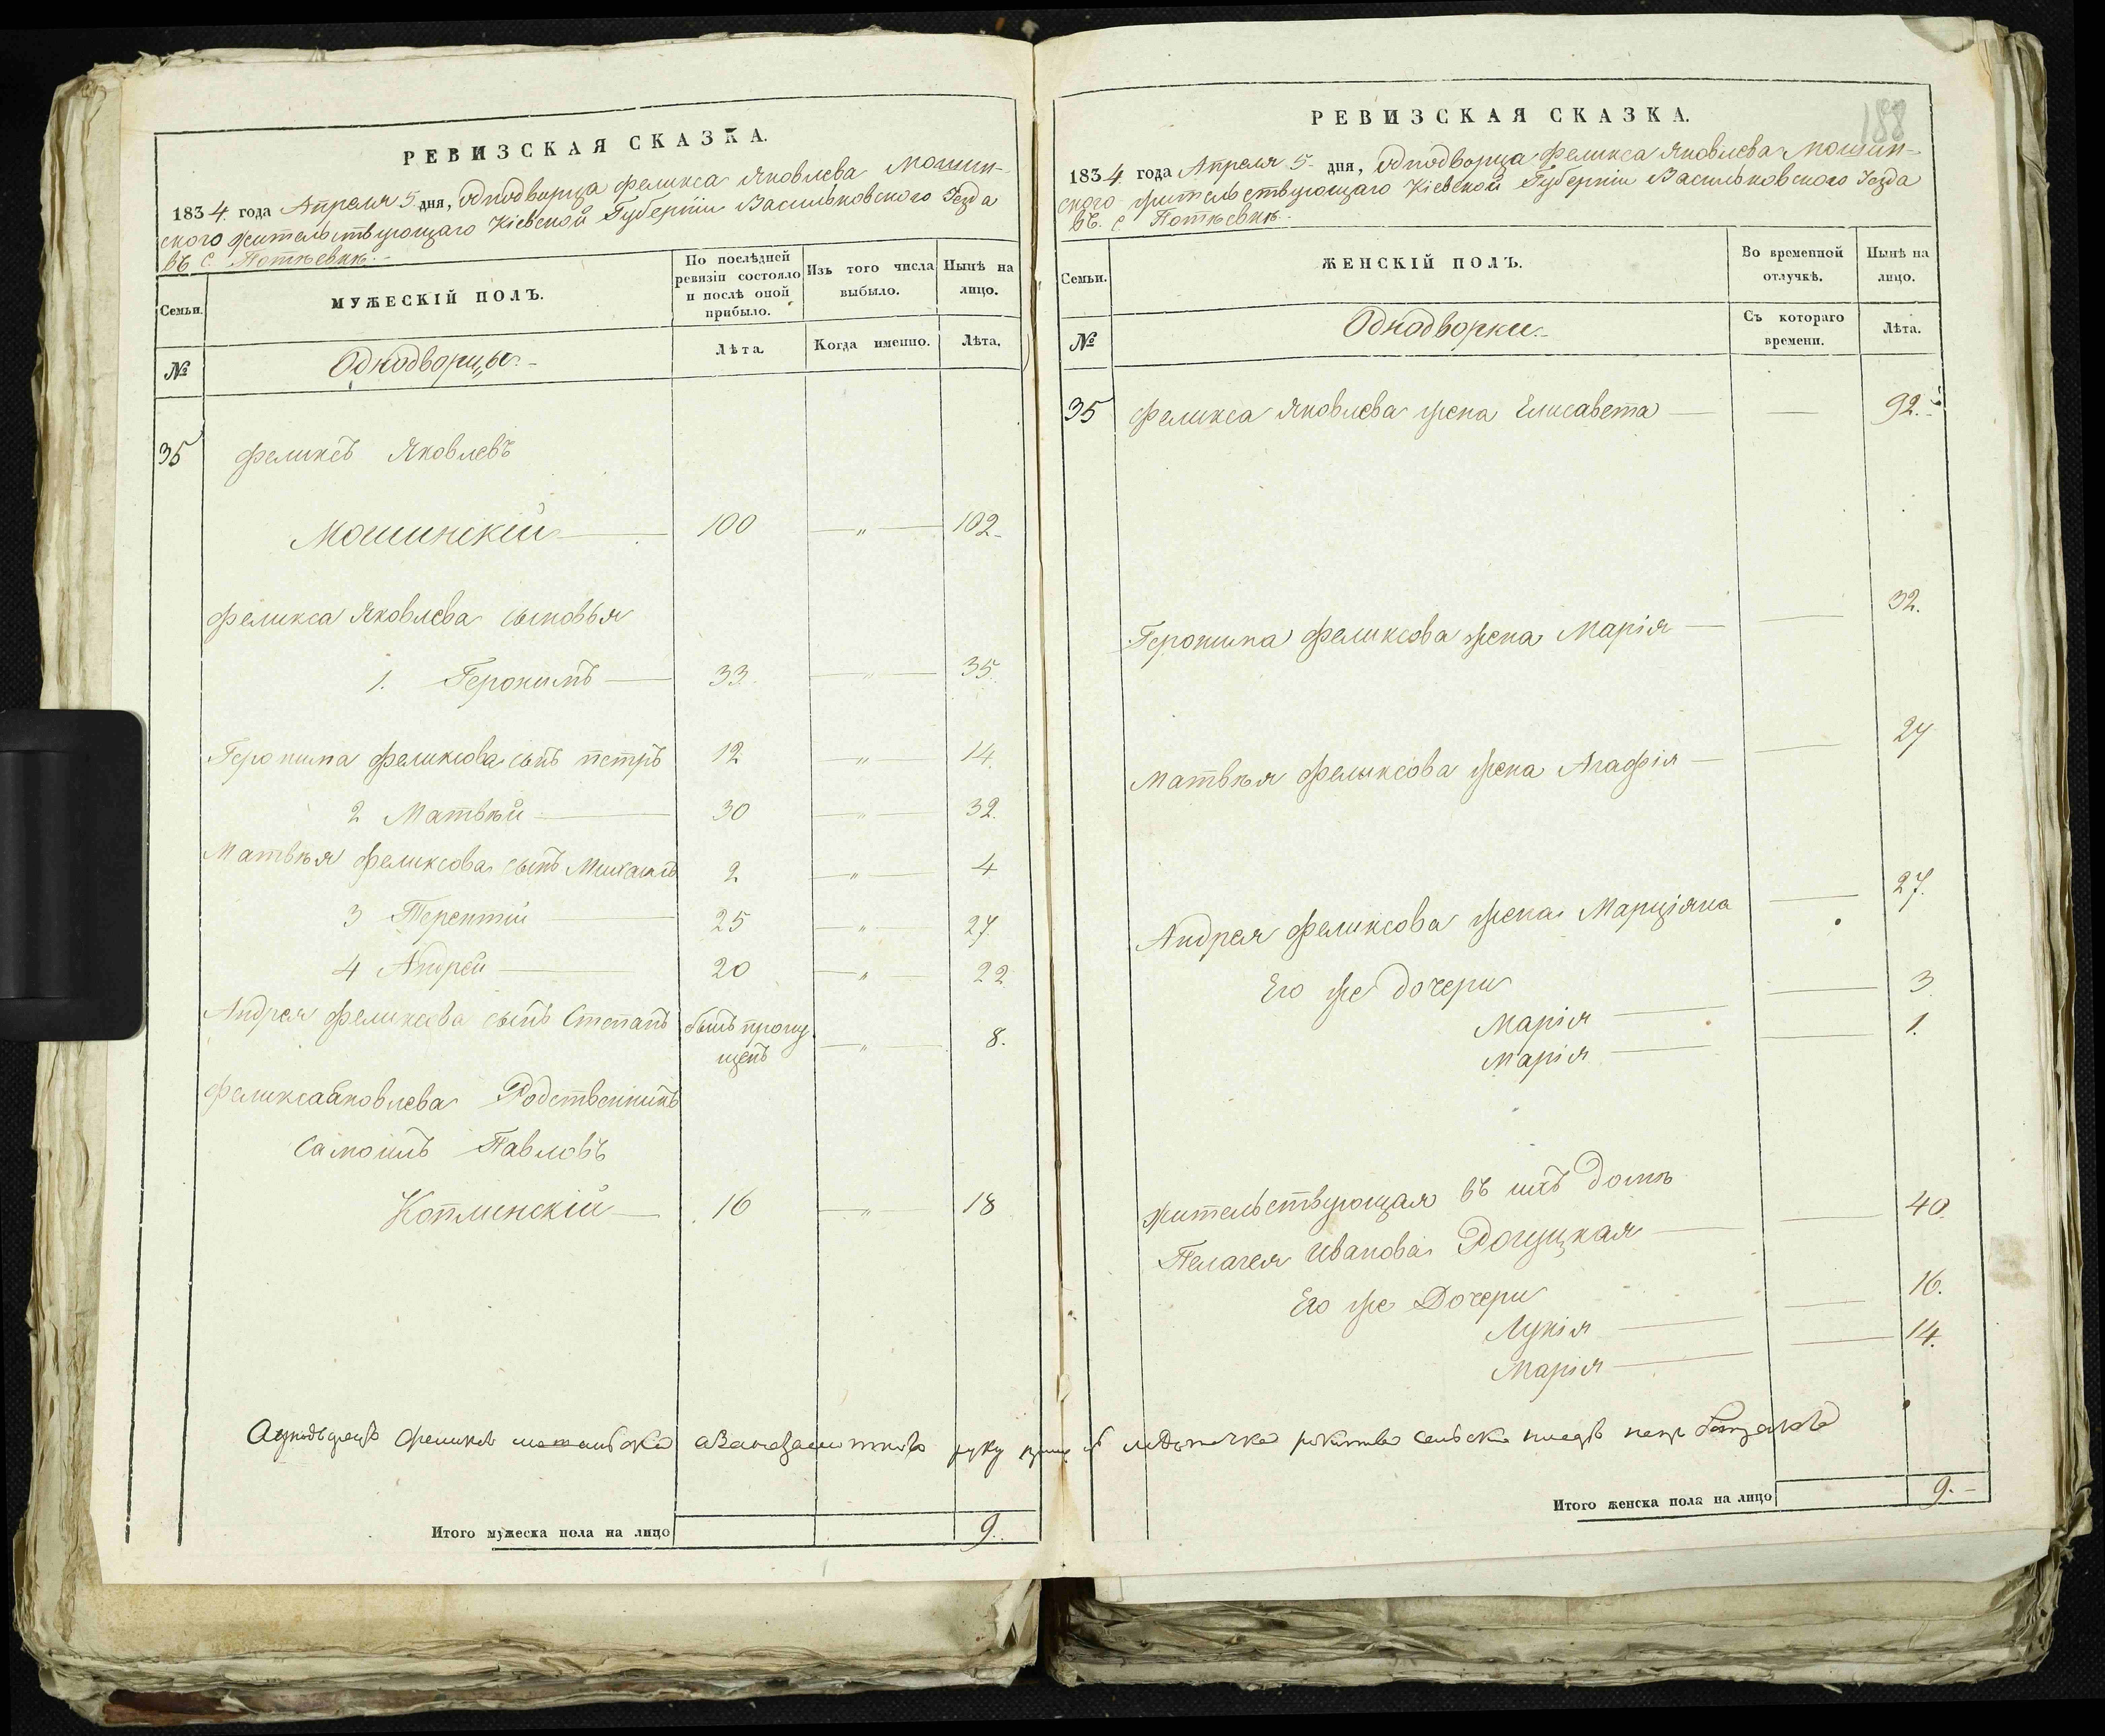 РЕВИЗСКАЯ СКАЗКА.
1834 года Апреля 5 дня, Однодворца Феликса Яковлева Мошин-
ского жительствующаго Кіевской Губерніи Васильковского Уезда
въ с.
Семьи.
МУЖЕСКІЙ ПОЛЪ.
По послѣдней ревизіи состояло и послѣ оной прибыло.
Изъ того числа выбыло.
Нынѣ на лицо.
№
Однодворцы.-
Лѣта.
Когда именно.
Лѣта.
35 Феликсъ Яковлевъ
Мошинскій 100 " 102
Феликса Яковлева сыновья
1. Геронимъ 33 " 35.
Геронима Феликсова сынъ петръ 12 " 14.
2 Матвѣй 30 " 32.
Матвѣя Феликсова сынъ Михаилъ 2 " 4
3 Терентій 25 " 27
4 Андрей 20 " 22
Андрея Феликсова сынъ Степанъ былъ пропу- " 8.
щенъ
Феликса Яковлева Родственникъ
Самоилъ Павловъ
Котлинскій 16 " 18
Итого мужеска пола на лицо 9.
188
РЕВИЗСКАЯ СКАЗКА.
1834 года Апреля 5 дня, Однодворца Феликса Яковлева Мошин-
ского жительствующаго Кіевской Губерніи Васильковского Уезда
въ с.
Семьи.
ЖЕНСКІЙ ПОЛЪ.
Во временной отлучкѣ.
Нынѣ на лицо.
№
Однодворки.-
Съ котораго времени.
Лѣта.
35 Феликса Яковлева жена Елисавета 92.
Геронима Феликсова жена Марія 32.
Матвѣя Феликсова жена Агафія 27
Андрея Феликсова жена Марціяна 27.
Его же дочери
Марія 3
Марія 1.
Жительствующая въ ихъ домѣ
Пелагея Иванова 40.
Его же Дочери
Лукія 16.
Марія 14.
Феликсъ руку
Итого женска пола на лицо 9.-